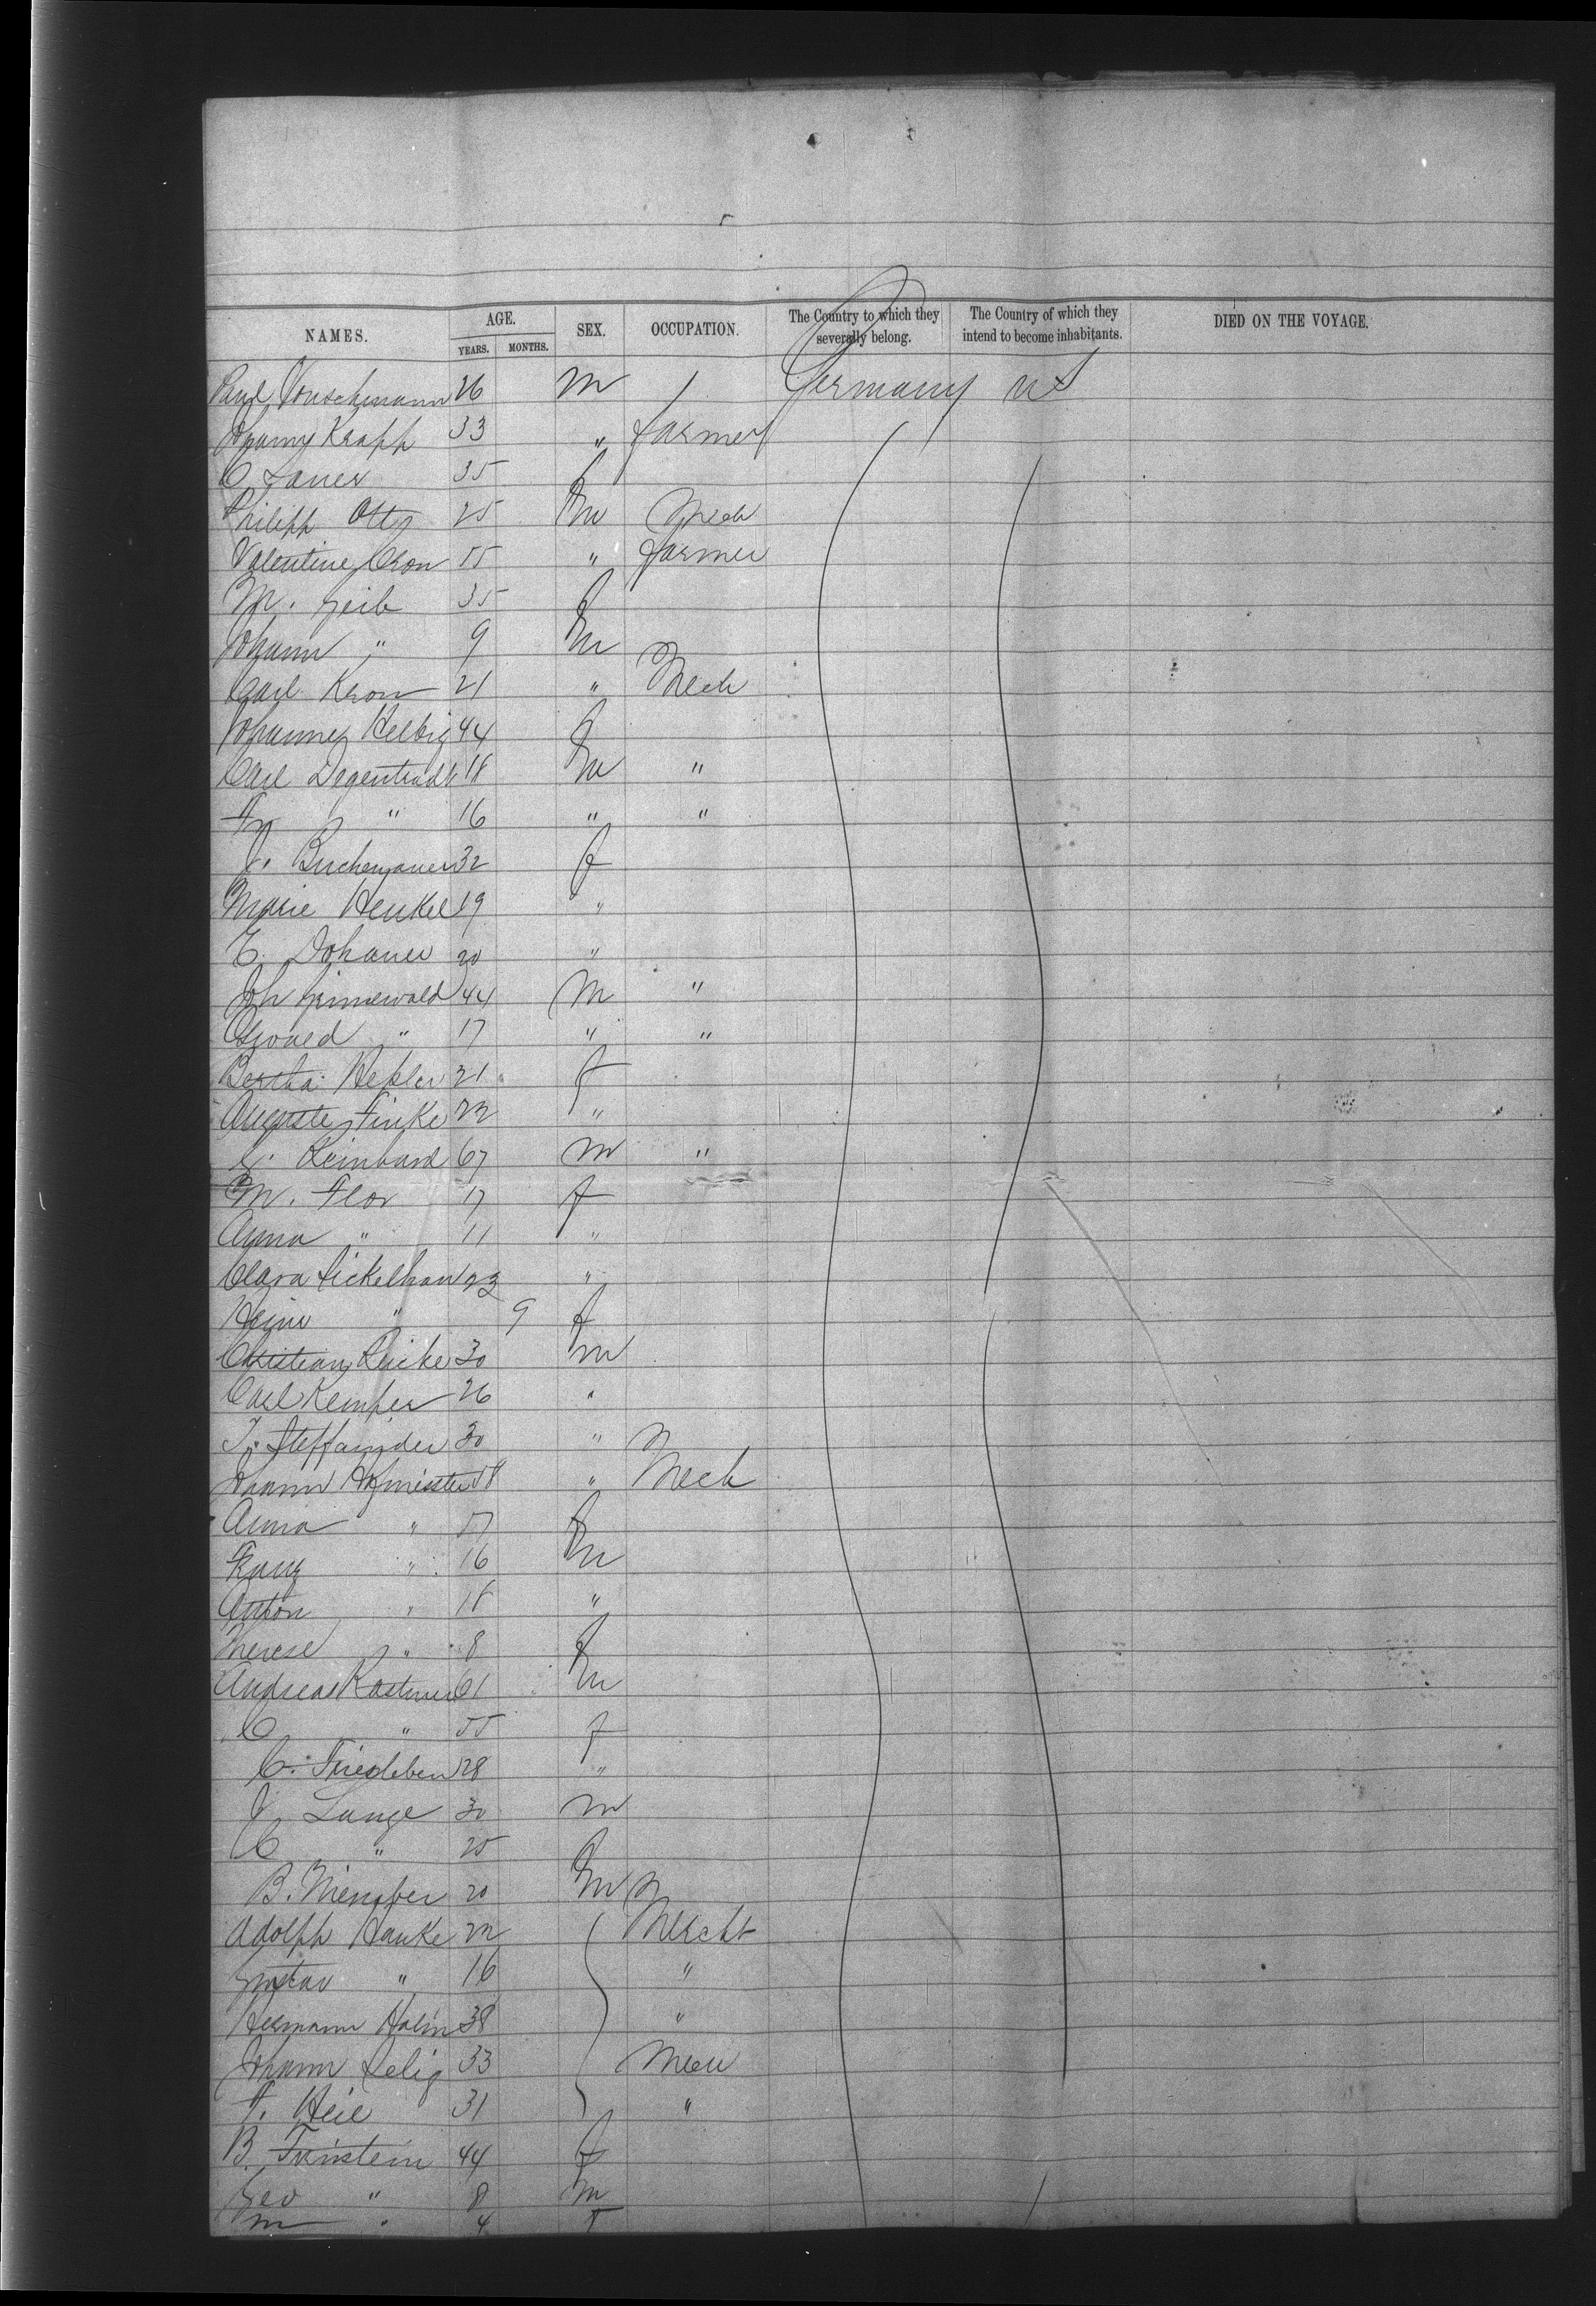 NAMES. AGE. YEARS. MONTHS. SEX. OCCUPATION. The Country to which they severally belong. The Country of which they intend to become inhabitants. DIED ON THE VOYAGE.
Paul 26 m / Germany US
Krapp 33 " farmer
C Lauer 35 f
Philipp Otto 25 m Mech
Valentine Cron 55 " farmer
M. Geib 35 f
Johann " 9 m
Carl Kron 21 " Mech
Helbig 44 f
Carl Degenhardt 18 m "
Fr " 16 " "
J. 32 f
Marie Henkel 19 "
E. 20 "
Joh Grimewald 44 M "
Oswald " 17 " "
Bertha Hepler 21 f
Auguste Finke 22 "
Reinhard 67 m "
M. Flor 17 f
Anna " 11 "
Clara Sickelhan 23 "
" 9 f
Christian Reicke 30 m
Carl Kemper 26 "
30 "
Johann Hofmeister 58 " Mech
Anna " 57 f
Franz " 16 m
Anton " 18 "
Therese " 8 f
Andreas Kastner 61 m
C " 55 f
C. Friedeben 28 "
J. Lange 30 m
C " 25 f
B. 20 m
Adolph Hanke 22 Mercht
Gustav " 16 "
Hermann Halm 38 "
Johann Selig 33 Mech
F. Heil 31 "
B. 44 f
Geo " 8 m
m " 4 f